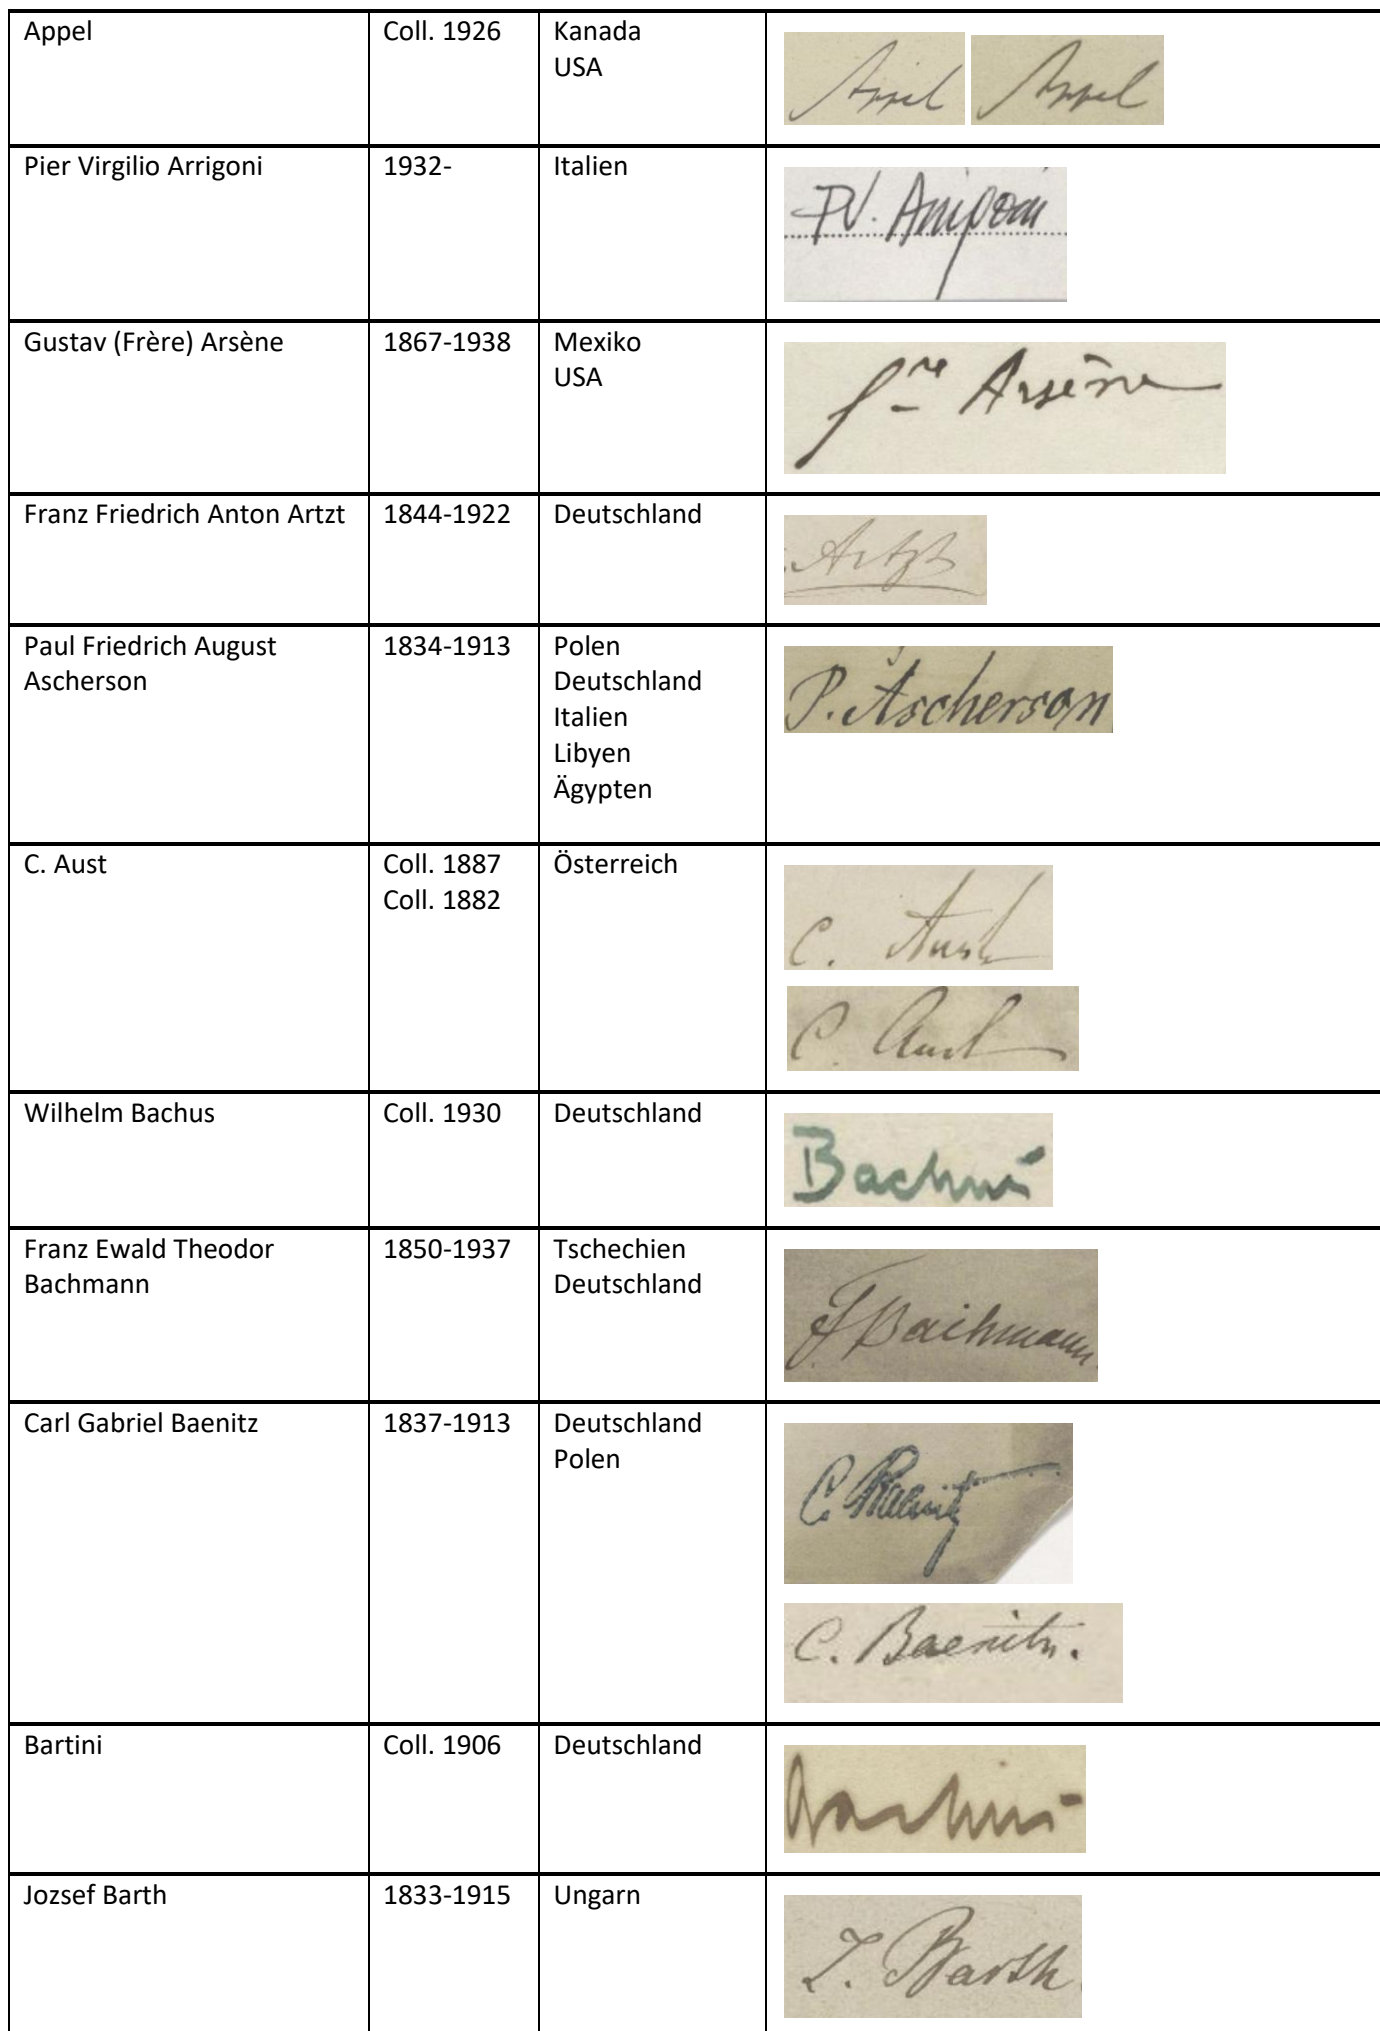 Appel
Coll. 1926
Kanada
USA
Appel
Appel
Pier Virgilio Arrigoni
1932-
Italien
P.V. Arrigoni
Gustav (Frère) Arsène
1867-1938
Mexiko
USA
fre Arsène
Franz Friedrich Anton Artzt
1844-1922
Deutschland
Artzt
Paul Friedrich August
Ascherson
1834-1913
Polen
Deutschland
Italien
Libyen
Ägypten
P. Ascherson
C. Aust
Coll. 1887
Coll. 1882
Österreich
C. Aust
C. Aust
Wilhelm Bachus
Coll. 1930
Deutschland
Bachus
Franz Ewald Theodor
Bachmann
1850-1937
Tschechien
Deutschland
F Bachmann
Carl Gabriel Baenitz
1837-1913
Deutschland
Polen
C. Baenitz
C. Baenitz.
Bartini
Coll. 1906
Deutschland
Jozsef Barth
1833-1915
Ungarn
J. Barth